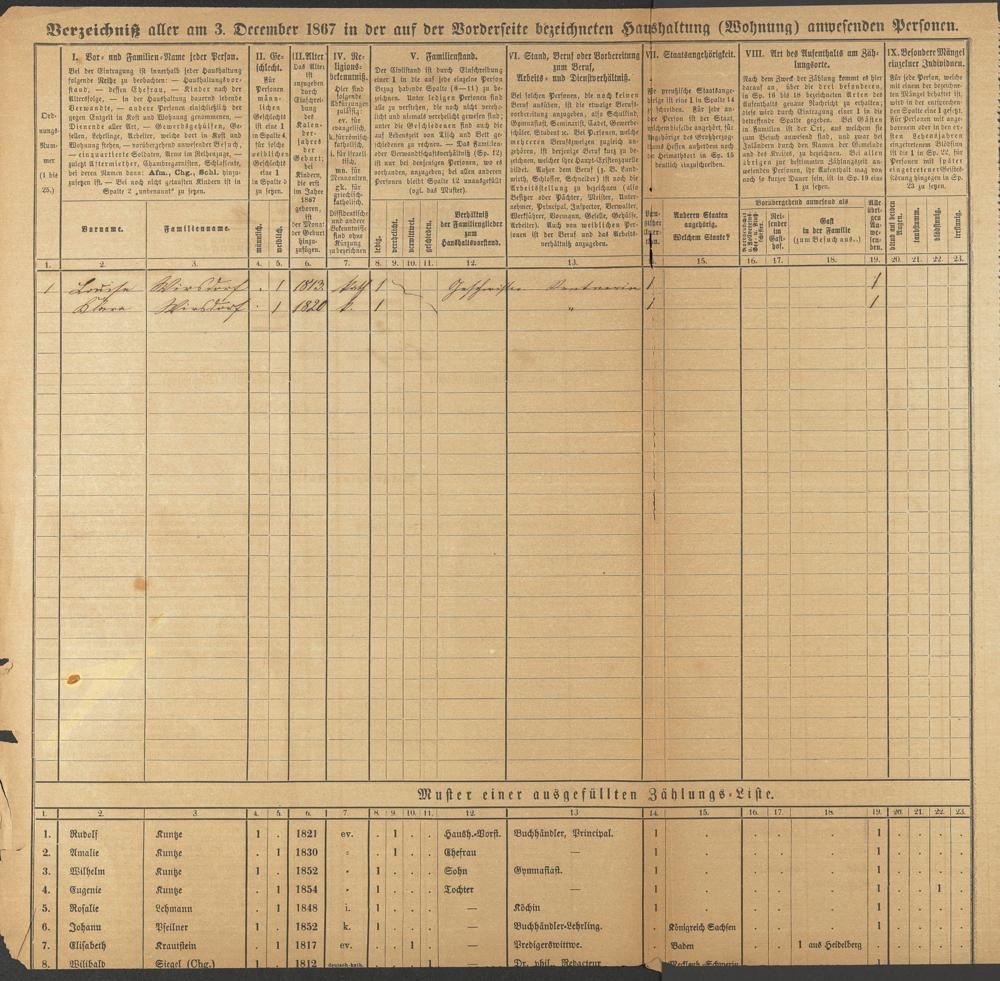 Verzeichniß aller am 3. December 1867 in der auf der Vorderseite bezeichneten Haushaltung (Wohnung) anwesenden Personen.
Ord-
nungs-
Num-
mer
(1 bis
25.)
I. Vor- und Familien-Name jeder Person.
Bei der Eintragung ist innerhalb jeder Haushaltung
folgende Reihe zu beobachten: — Haushaltungsvor-
stand, — dessen Ehefrau, — Kinder nach der
Altersfolge, — in der Haushaltung dauernd lebende
Verwandte, — andere Personen einschließlich der
gegen Entgelt in Kost und Wohnung genommenen, —
Dienende aller Art, — Gewerbsgehülfen, Ge-
sellen, Lehrlinge, Arbeiter, welche dort in Kost und
Wohnung stehen, — vorübergehend anwesender Besuch,
— einquartierte Soldaten, Arme im Reihenzuge, —
zuletzt Aftermiether, Chambregarnisten, Schlafleute,
bei deren Namen dann: Afm., Chg., Schl. hinzu-
zusetzen ist. — Bei noch nicht getauften Kindern ist in
Spalte 2 „unbenannt" zu setzen.
Vorname.
Familienname.
II. Ge-
schlecht.
Für
Personen
männ-
lichen
Geschlechts
ist eine 1
in Spalte 4,
für solche
weiblichen
Geschlechts
eine 1
in Spalte 5
zu setzen.
männlich.
weiblich.
III. Alter
Das Alter
ist
anzugeben
durch
Einschrei-
bung
des
Kalen-
der-
jahres
der
Geburt;
bei
Kindern,
die erst
im Jahre
1867
geboren,
ist
der Monat
der Geburt
hinzu-
zufügen.
IV. Re-
ligions-
bekenntniß.
Hier sind
folgende
Abkürzungen
zulässig:
ev. für
evangelisch,
k. für römisch-
katholisch,
i. für israeli-
tisch,
mn. für
Mennoniten,
gk. für
griechisch-
katholisch.
Dissidentische
und andere
Bekenntnisse
sind ohne
Kürzung
zu bezeichnen
V. Familienstand.
Der Civilstand ist durch Einschreibung
einer 1 in die auf jede einzelne Person
Bezug habende Spalte (8—11) zu be-
zeichnen. Unter ledigen Personen sind
alle zu verstehen, die noch nicht vereh-
licht und niemals verehelicht gewesen sind;
unter die Geschiedenen sind auch die
zeitlebens von Tisch und Bett ge-
schiedenen zu rechnen. — Das Familien-
oder Verwandtschaftsverhältniß (Sp. 12)
ist nur bei denjenigen Personen, wo es
vorhanden, anzugeben; bei allen anderen
Personen bleibt Spalte 12 unausgefüllt
(vgl. das Muster).
ledig.
verehelicht.
verwittwet.
geschieden.
Verhältniß
der Familienglieder
zum
Haushaltsvorstand.
VI. Stand, Beruf oder Vorbereitung
zum Beruf,
Arbeits- und Dienstverhältniß.
Bei solchen Personen, die noch keinen
Beruf ausüben, ist die etwaige Berufs-
vorbereitung anzugeben, also Schulkind,
Gymnasiast, Seminarist, Cadet, Gewerbe-
schüler, Student ꝛc. Bei Personen, welche
mehreren Berufszweigen zugleich an-
gehören, ist derjenige Beruf kurz zu be-
zeichnen, welcher ihre Haupt-Existenzquelle
bildet. Außer dem Beruf (z. B. Land-
wirth, Schlosser, Schneider) ist noch die
Arbeitsstellung zu bezeichnen (also
Besitzer oder Pächter, Meister, Unter-
nehmer, Principal, Inspector, Verwalter,
Werkführer, Vormann, Geselle, Gehülfe,
Arbeiter). Auch von weiblichen Per-
sonen ist der Beruf und das Arbeits-
verhältniß anzugeben.
VII. Staatsangehörigkeit.
Anderen Staaten
angehörig.
Welchem Staate?
VIII. Art des Aufenthalts am Zäh-
lungsorte.
Nach dem Zweck der Zählung kommt es hier
darauf an, über die drei besonderen,
in Sp. 16 bis 18 bezeichneten Arten des
Aufenthalts genaue Nachricht zu erhalten;
diese wird durch Eintragung einer 1 in die
betreffende Spalte gegeben. Bei Gästen
in Familien ist der Ort, aus welchem sie
zum Besuch anwesend sind, und zwar bei
Inländern durch den Namen der Gemeinde
und des Kreises, zu bezeichnen. Bei allen
übrigen zur bestimmten Zählungszeit an-
wesenden Personen, ihr Aufenthalt mag von
noch so kurzer Dauer sein, ist in Sp. 19 eine
1 zu setzen.
Vorübergehend anwesend als
Rei-
sender
im
Gast-
hof.
Gast
in der Familie
(zum Besuch aus..)
Alle
übri-
gen
An-
we-
sen-
den.
IX. Besondere Mängel
einzelner Individuen.
blind auf beiden
Augen.
taubstumm.
blödsinnig.
irrsinnig.
1. 2. 3. 4. 5. 6. 7. 8. 9. 10. 11. 12. 13. 15. 16. 17. 18. 19. 20. 21. 22. 23.
1 Louise Wirsdorf . 1 1813 kath 1 Geschwister Rentnerin 1 1
Clara Wirsdorf . 1 1820 k. 1 " 1 1
Muster einer ausgefüllten Zählungs-Liste.
1. 2. 3. 4. 5. 6. 7. 8. 9. 10. 11. 12. 13 14. 15. 16. 17. 18. 19. 20. 21. 22. 23.
1. Rudolf Kuntze 1 . 1821 ev. . 1 . . Haush.-Vorst. Buchhändler, Principal. 1 . . . . 1 . . . .
2. Amalie Kuntze . 1 1830 " . 1 . . Ehefrau — 1 . . . . 1 . . . .
3. Wilhelm Kuntze 1 . 1852 " 1 . . . Sohn Gymnasiast. 1 . . . . 1 . . . .
4. Eugenie Kuntze . 1 1854 " 1 . . . Tochter — 1 . . . . 1 . . 1 .
5. Rosalie Lehmann . 1 1848 i. 1 . . . — Köchin 1 . . . . 1 . . . .
6. Johann Pfeilner 1 . 1852 k. 1 . . . — Buchhändler-Lehrling. . Königreich Sachsen . . . 1 . . . .
7. Elisabeth Krautstein . 1 1817 ev. . . 1 . — Predigerswittwe. . Baden . . 1 aus Heidelberg . . . . .
8. Wilibald Siegel (Chg.) 1 . 1812 deutsch-kath. . . . 1 — Dr. phil., Redacteur . Mecklenb.-Schwerin . . . 1 . . . .